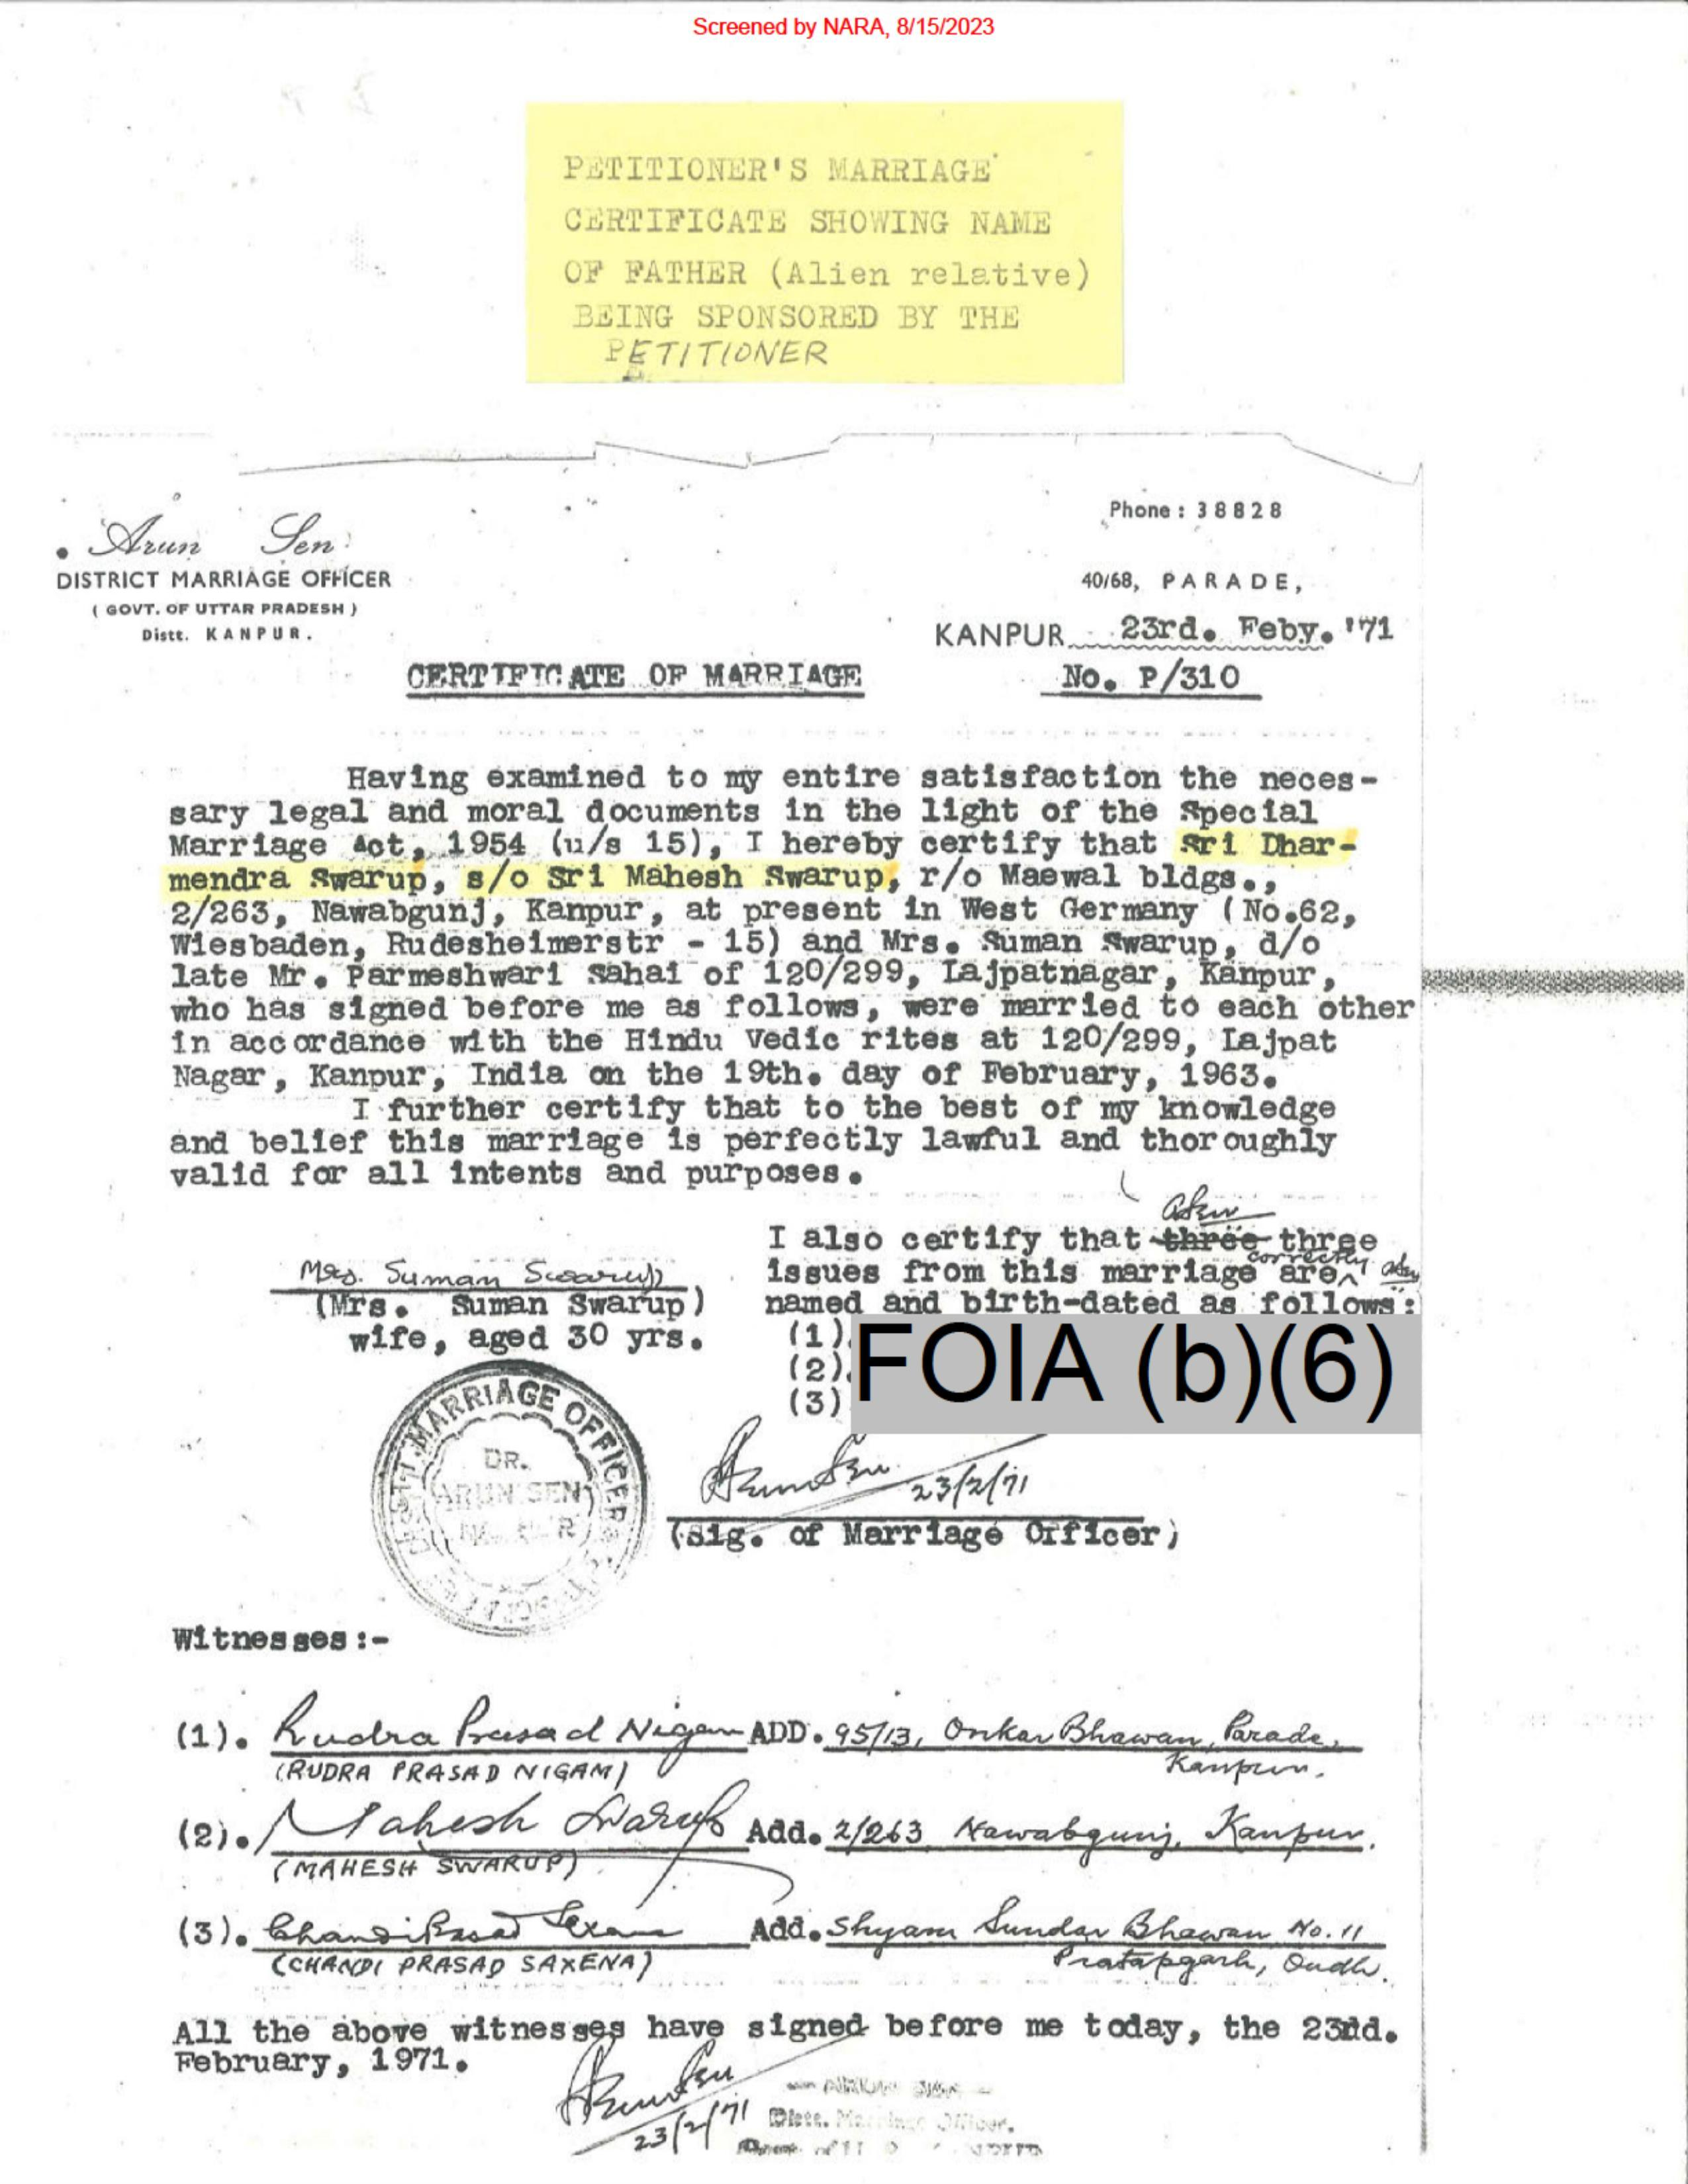 Screened by NARA, 8/15/2023
PETITIONER'S MARRIAGE
CERTIFICATE SHOWING NAME
OF FATHER (Alien relative)
BEING SPONSORED BY THE
PETITIONER
Arun Sen
DISTRICT MARRIAGE OFFICER
( GOVT. OF UTTAR PRADESH )
Distt. KANPUR.
Phone : 38828
40/68, PARADE,
KANPUR 23rd. Feby. '71
CERTIFICATE OF MARRIAGE
No. P/310
Having examined to my entire satisfaction the neces-
sary legal and moral documents in the light of the Special
Marriage Act, 1954 (u/s 15), I hereby certify that Sri Dhar-
mendra Swarup, s/o Sri Mahesh Swarup, r/o Maewal bldgs.,
2/263, Nawabgunj, Kanpur, at present in West Germany (No.62,
Wiesbaden, Rudesheimerstr - 15) and Mrs. Suman Swarup, d/o
late Mr. Parmeshwari Sahai of 120/299, Lajpatnagar, Kanpur,
who has signed before me as follows, were married to each other
in accordance with the Hindu Vedic rites at 120/299, Lajpat
Nagar, Kanpur, India on the 19th. day of February, 1963.
I further certify that to the best of my knowledge
and belief this marriage is perfectly lawful and thoroughly
valid for all intents and purposes.
I also certify that three three
issues from this marriage are correctly
named and birth-dated as follows:
(1).
(2).
(3)
FOIA (b)(6)
Mrs. Suman Swarup
(Mrs. Suman Swarup)
wife, aged 30 yrs.
DISTT. MARRIAGE OFFICER
DR.
ARUN SEN
Arun Sen 23/2/71
(Sig. of Marriage Officer)
Witnesses:-
(1). Rudra Prasad Nigam ADD. 95/13, Onkar Bhawan, Parade,
(RUDRA PRASAD NIGAM) Kanpur.
(2). Mahesh Swarup Add. 2/263 Nawabgunj, Kanpur.
(MAHESH SWARUP)
(3). Chandi Prasad Saxena Add. Shyam Sundar Bhawan No. 11
(CHANDI PRASAD SAXENA) Pratapgarh, Oudh.
All the above witnesses have signed before me today, the 23rd.
February, 1971.
Arun Sen
23/2/71
Distt. Marriage Officer.